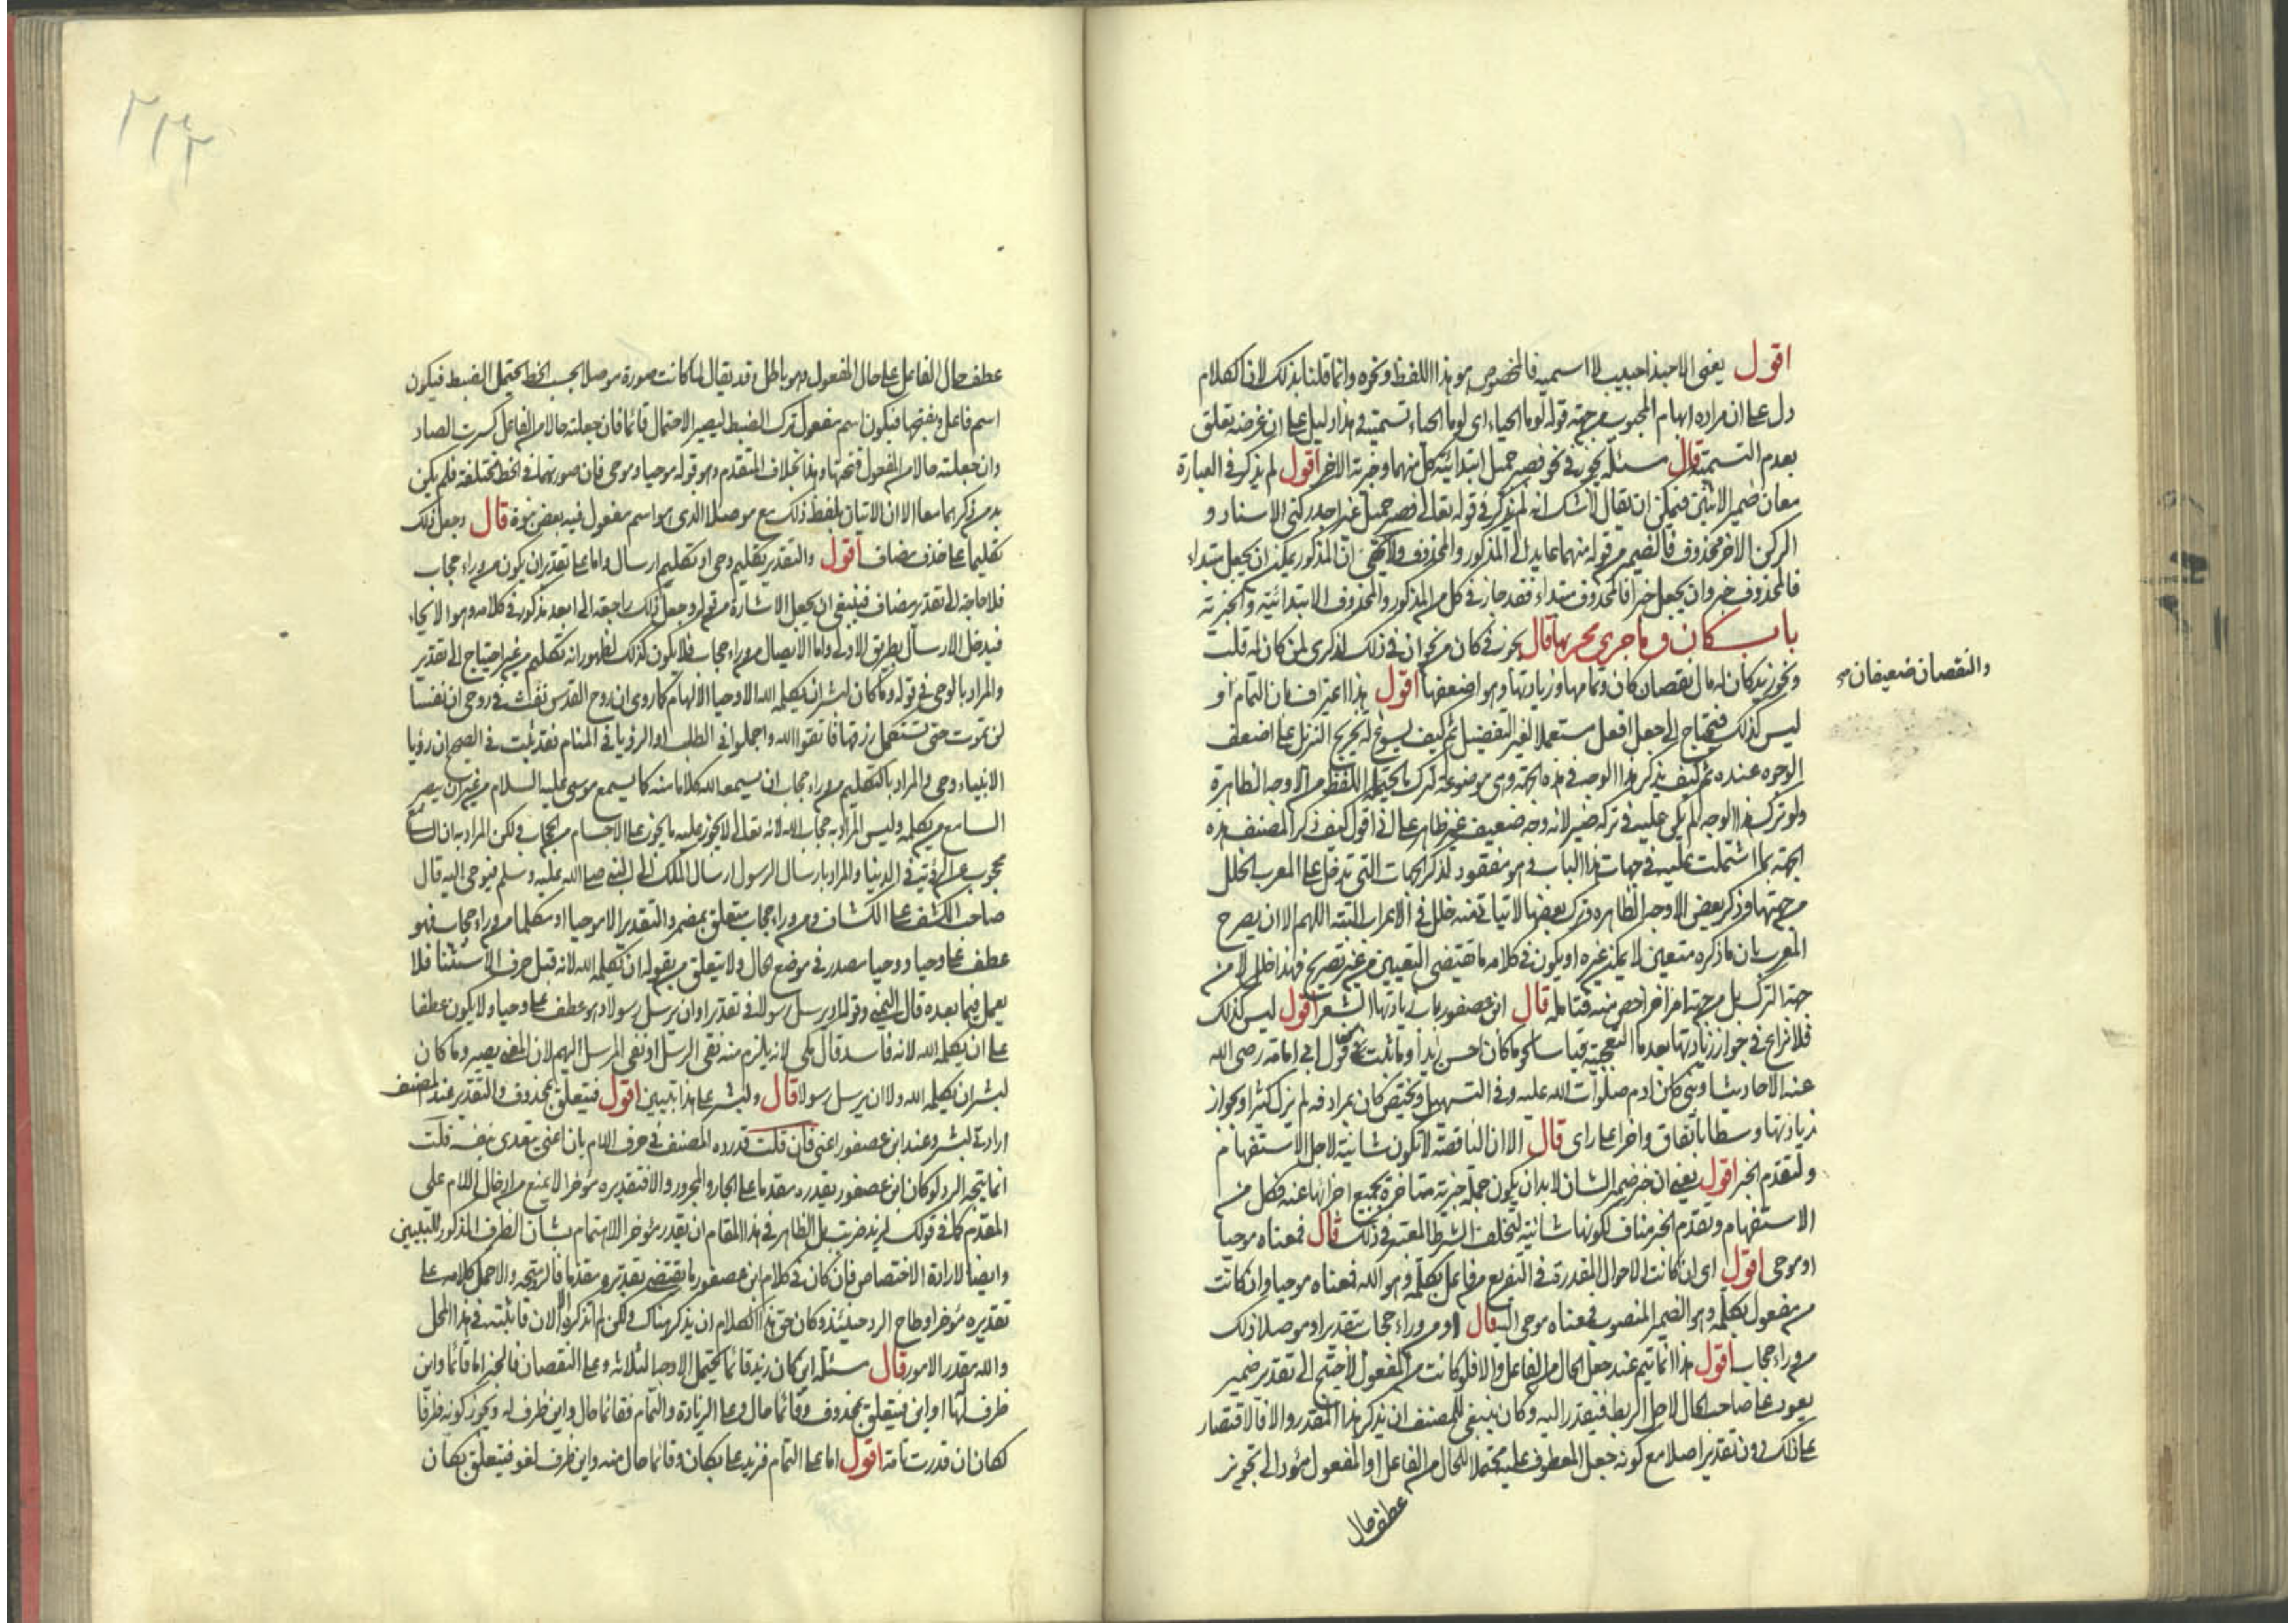 اقول يعني الا حبذا حبيب لا اسميه فالمخصوص هو هذا اللفظ ونحوه وانما قلنا بذلك لان الكلام
دل على ان مراده ابهام المحبوب من جهة قوله لوما الحياء اي لوما الحياء تسميته وهذا دليل على ان غرضه تعلق
بعدم التسمية قال مسئلة يجوز في نحو فصبر جميل ابتدائية كل منهما وخبرية الاخر اقول لم يذكر في العبارة
معان ضمير الاثنين فيمكن ان يقال لا شك انه لم يذكر في قوله تعالى فصبر جميل غير احد ركني الاسناد و
الركن الاخر محذوف فالضمير من قوله منهما عايد الى المذكور والمحذوف ولا يخفى ان المذكور يمكن ان يجعل مبتداء
فالمحذوف خبر وان يجعل خبرا فالمحذوف مبتداء فقد جاز في كل من المذكور والمحذوف الابتدائية والخبرية
باب كان وما جرى مجريها قال يجوز في كان من نحو ان في ذلك لذكرى لمن كان له قلب
ونحو زيد كان له مال نقصان كان وتمامها وزيادتها وهو اضعفها اقول هذا اعتراف بان التمام او
والنقصان ضعيفان صح
ليس كذلك فيحتاج الى جعل افعل مستعملا لغير التفضيل ثم كيف يسوغ له تخريج التنزيل على اضعف
الوجوه عنده ثم كيف يذكر هذا الوجه في هذه الجهة وهي موضوعة لترك ما يحتمله اللفظ من الاوجه الظاهرة
ولو ترك هذا الوجه لم يكن عليه في تركه ضير لانه وجه ضعيف غير ظاهر على اني اقول كيف ذكر المصنف هذه
الجهة بما اشتملت عليه في جهات هذا الباب وهو معقود لذكر الجهات التي تدخل على المعرب الخلل
من جهتها وذكر بعض الاوجه الظاهرة وترك بعضها لا يتاتى منه خلل في الاعراب البتة اللهم الا ان يصرح
المعرب بان ما ذكره متعين لا يمكن غيره او يكون في كلامه ما يقتضي التعيين من غير تصريح فهذا خلل لا من
جهة الترك بل من جهة امر اخر اخص منه فتامله قال ابن عصفور باب زيادتها الشعر اقول ليس كذلك
فلا نزاع في جواز زيادتها بعد ما التعجبية قياسا نحو ما كان احسن زيدا وما ثبت في نحو قول ابي امامة رضي الله
عنه الاحاديث او نبي كان ادم صلوات الله عليه وفي التسهيل ويختص كان بمرادفة لم يزل كثيرا وبجواز
زيادتها وسطا باتفاق واخرا على راى قال الا ان الناقصة لا تكون شانية لاجل الاستفهام
ولتقدم الخبر اقول يعني ان خبر ضمير الشان لا بد ان يكون جملة خبرية متاخرة بجميع اجزائها عنه فكل من
الاستفهام وتقدم الخبر مناف لكونها شانية لتخلف الشرط المعتبر في ذلك قال فمعناه موحيا
او موحى اقول اي ان كانت الاحوال المقدرة في التفريع من فاعل يكلمه وهو الله فمعناه موحيا وان كانت
من مفعول يكلمه وهو الضمير المنصوب فمعناه موحى اليه قال او من وراء حجاب بتقدير او موصلا ذلك
من وراء حجاب اقول هذا انما يتم عند جعل الحال من الفاعل والا فلو كانت من المفعول لاحتيج الى تقدير ضمير
يعود على صاحب الحال لاجل الربط فيقدر اليه وكان ينبغي للمصنف ان يذكر هذا المقدر والا فالاقتصار
على ذلك دون تقدير اصلا مع كونه جعل المعطوف عليه محتملا للحال من الفاعل او المفعول مؤد الى تجويز
عطف حال
عطف حال الفاعل على حال المفعول وهو باطل وقد يقال لما كانت صورة موصلا بحسب الخط يحتمل الضبط فيكون
اسم فاعل وبفتحها فيكون اسم مفعول ترك الضبط ليصير الاحتمال قائما فان جعلته حالا من الفاعل كسرت الصاد
وان جعلته حالا من المفعول فتحتها وهذا بخلاف المتقدم وهو قوله موحيا وموحى فان صورتهما في الخط مختلفة فلم يكن
بد من ذكرهما معا الا ان الاتيان بلفظ ذلك مع موصلا الذي هو اسم مفعول فيه بعض نبوة قال وجعل ذلك
تكليما على حذف مضاف اقول والتقدير تكليم وحي او تكليم ارسال واما على تقدير ان يكون من وراء حجاب
فلا حاجة الى تقدير مضاف فينبغي ان يجعل الاشارة من قوله وجعل ذلك راجعة الى ابعد مذكور في كلامه وهو الايحاء
فيدخل الارسال بطريق الاولى واما الايصال من وراء حجاب فلا يكون كذلك لظهور انه تكليم من غير احتياج الى تقدير
والمراد بالوحي في قوله وما كان لبشر ان يكلمه الله الا وحيا الالهام كما روى ان روح القدس نفث في روعي ان نفسا
لن تموت حتى تستكمل رزقها فاتقوا الله واجملوا في الطلب او الرؤيا في المنام فقد ثبت في الصحيح ان رؤيا
الانبياء وحي والمراد بالتكليم من وراء حجاب ان يسمعه الله كلاما منه كما يسمع موسى عليه السلام من غير ان يبصر
السامع من يكلمه وليس المراد به حجاب الله لانه تعالى لا يجوز عليه ما يجوز على الاجسام من الحجاب ولكن المراد به ان السامع
محجوب عن الرؤية في الدنيا والمراد بارسال الرسول ارسال الملك الى النبي صلى الله عليه وسلم فيوحى اليه قال
صاحب الكشف على الكشاف ومن وراء حجاب متعلق بمضمر والتقدير الا موحيا او مكلما من وراء حجاب فهو
عطف على وحيا ووحيا مصدر في موضع الحال ولا يتعلق من بقوله ان يكلمه الله لانه قبل حرف الاستثنا فلا
يعمل فيما بعده قال اليمني وقوله او يرسل رسولا في تقدير او ان يرسل رسولا وهو عطف على وحيا ولا يكون عطفا
على ان يكلمه الله لانه فاسد قال مكي لانه يلزم منه نفي الرسل او نفي المرسل اليهم لان المعنى يصير وما كان
لبشر ان يكلمه الله ولا ان يرسل رسولا قال ولبشر على هذا تبيين اقول فيتعلق بمحذوف والتقدير عند المصنف
ارادتي لبشر وعند ابن عصفور اعني فان قلت قد رده المصنف في حرف اللام بان اعني يتعدى بنفسه قلت
انما يتجه الرد لو كان ابن عصفور يقدره مقدما على الجار والمجرور والا فتقديره مؤخرا لا يمنع من ادخال اللام على
المقدم كما في قولك لزيد ضربت بل الظاهر في هذا المقام ان يقدر مؤخرا للاهتمام بشان الظرف المذكور للتبيين
وايضا لارادة الاختصاص فان كان في كلام ابن عصفور ما يقتضي تقديره مقدما فالرد متجه والا حمل كلامه على
تقديره مؤخرا وطاح الرد حينئذ وكان حق هذا الكلام ان يذكر هناك ولكن لم اتذكره الا الان فاثبته في هذا المحل
والله مقدر الامور قال مسئلة اين كان زيد قائما يحتمل الاوجه الثلاثة وعلى النقصان فالخبر اما قائما واين
ظرف لها او اين فيتعلق بمحذوف وقائما حال وعلى الزيادة والتمام فقائما حال واين ظرف له ويجوز كونه ظرفا
لكان ان قدرت تامة اقول اما على التمام فزيد فاعل بكان وقائما حال منه واين ظرف لغو فيتعلق بكان